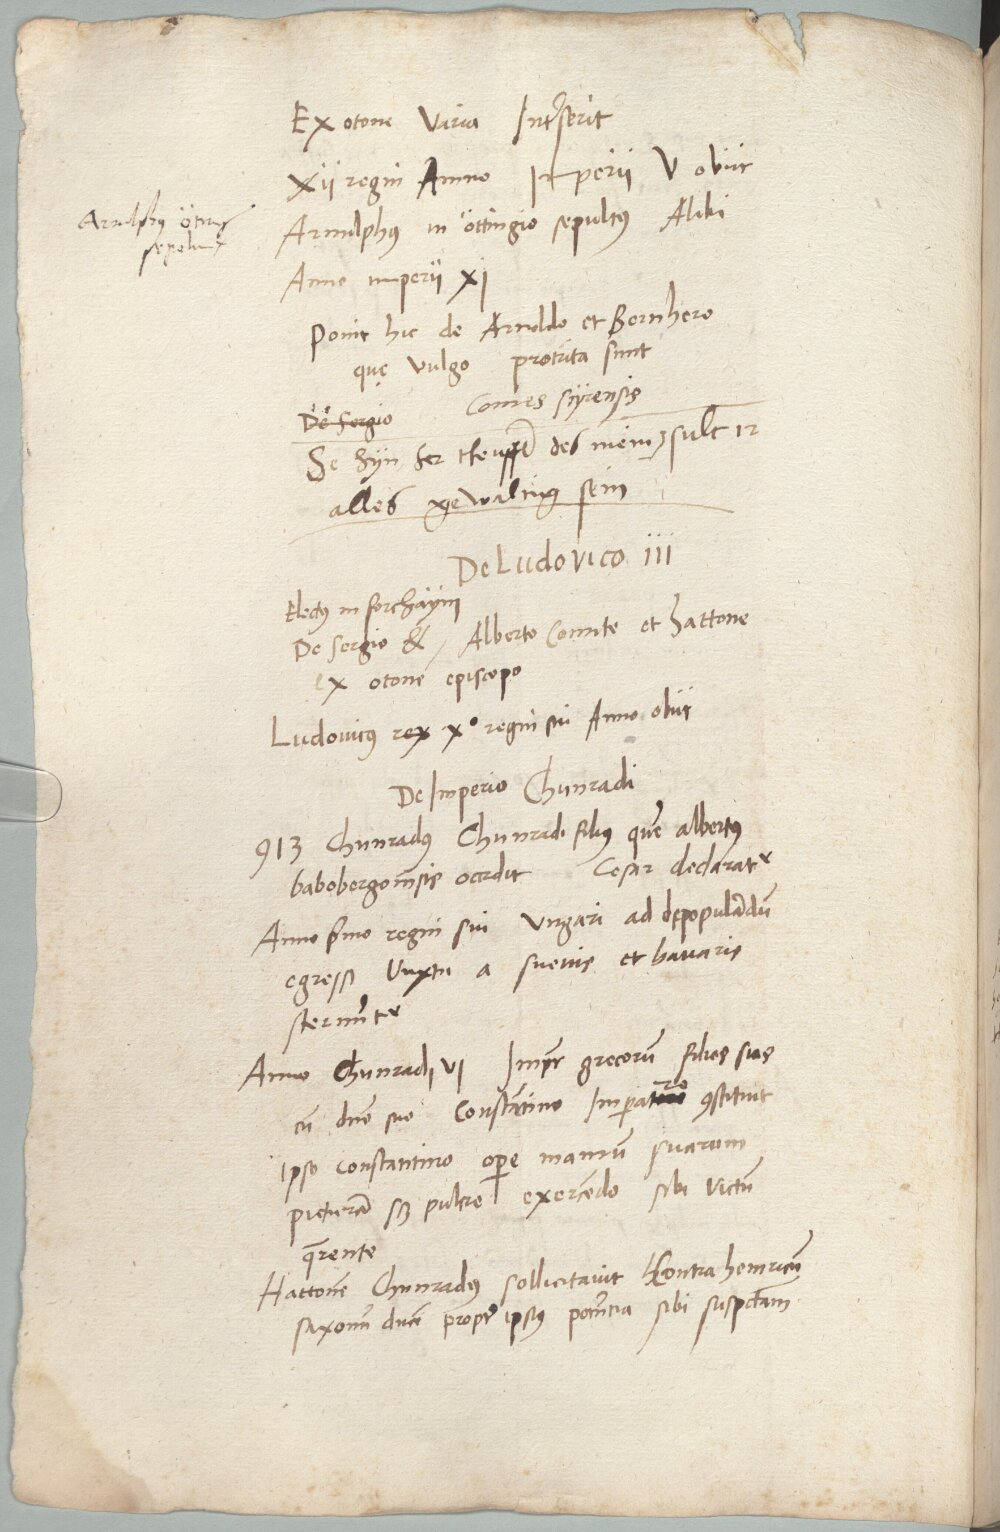 Ex otone varia Inserit
Xii regni Anno Imperii V obiit
Arnulphus ötingus
sepelitur
Arnulphus in öttingio sepultus Alibi
Anno imperii xi
Ponit hic de Arnoldo et Bernhero
que vulgo protrita sunt
De Sergio Comes scyrensis
alles gewaltig sein
De Ludovico iii
Electus in forchaÿm
De sergio & Alberto Comite et hattone
Ex otone episcopo
Ludovicus rex x° regni sui Anno obiit
De Imperio Chunradi
913 Chunradus Chunradi filius quem albertus
babobergensis occidit Cesar declaratur
Anno primo regni sui Vngari ad depopulandum
egressi a suevis et bavaris
sternuntur
Anno Chunradi vi Imperator grecorum filios suos
cum domino suo Constantino Imperatore constituit
ipso constantino opere manuum suarum
picturam scilicet pulcre exercendo sibi victum
querente
Hattonem Chunradus sollicitavit contra henricum
saxonum ducem propter ipsius potentia sibi suspectam